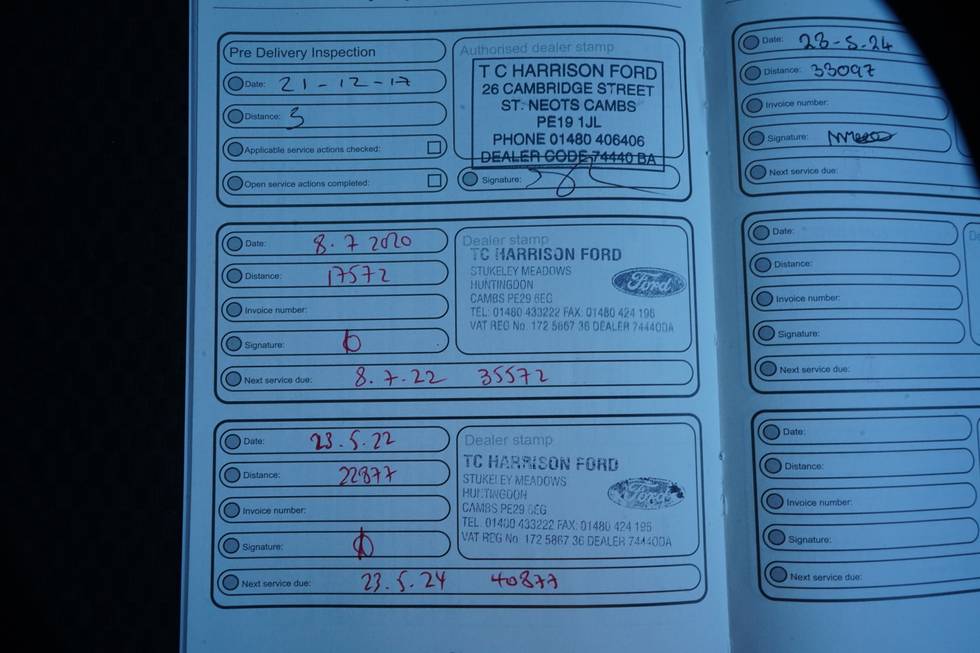 Pre Delivery Inspection
Date: 21-12-17
Distance: 3
Applicable service actions checked:
Open service actions completed:
Authorised dealer stamp
T C HARRISON FORD
26 CAMBRIDGE STREET
ST. NEOTS CAMBS
PE19 1JL
PHONE 01480 406406
DEALER CODE 74440 BA
Signature:
Date: 8.7 2020
Distance: 17572
Invoice number:
Signature:
Next service due: 8.7.22 35572
Dealer stamp
TC HARRISON FORD
STUKELEY MEADOWS
HUNTINGDON
CAMBS PE29 6EG
TEL: 01480 433222 FAX: 01480 424 196
VAT REG No. 172 5867 36 DEALER 74440DA
Ford
Date: 23.5.22
Distance: 22877
Invoice number:
Signature:
Next service due: 23.5.24 40877
Dealer stamp
TC HARRISON FORD
STUKELEY MEADOWS
HUNTINGDON
CAMBS PE29 6EG
TEL: 01480 433222 FAX: 01480 424 196
VAT REG No. 172 5867 36 DEALER 74440DA
Ford
Date: 23-5-24
Distance: 33097
Invoice number:
Signature:
Next service due:
Date:
Distance:
Invoice number:
Signature:
Next service due:
Date:
Distance:
Invoice number:
Signature:
Next service due: